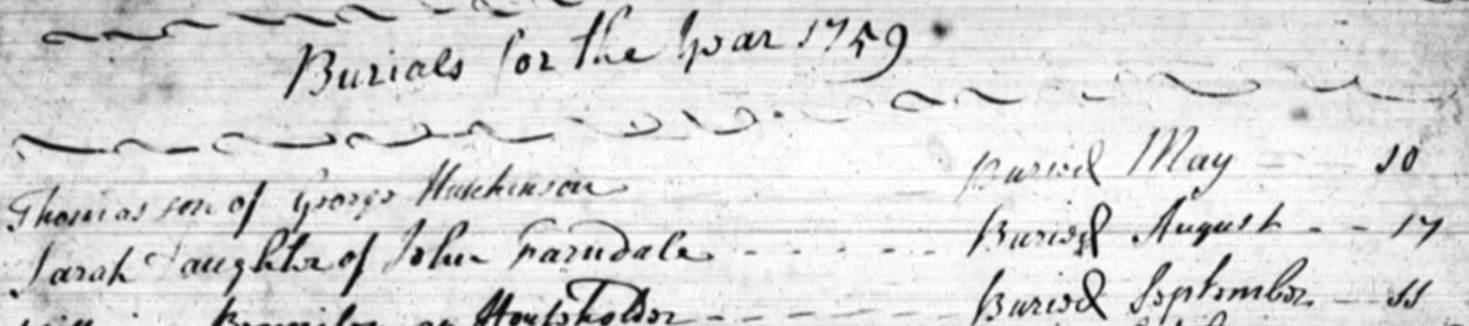 Burials for the Year 1759
Thomas son of George Hutchinson Buried May 10
Sarah Daughter of John Farndale Buried August 17
an Housholder Buried September 11